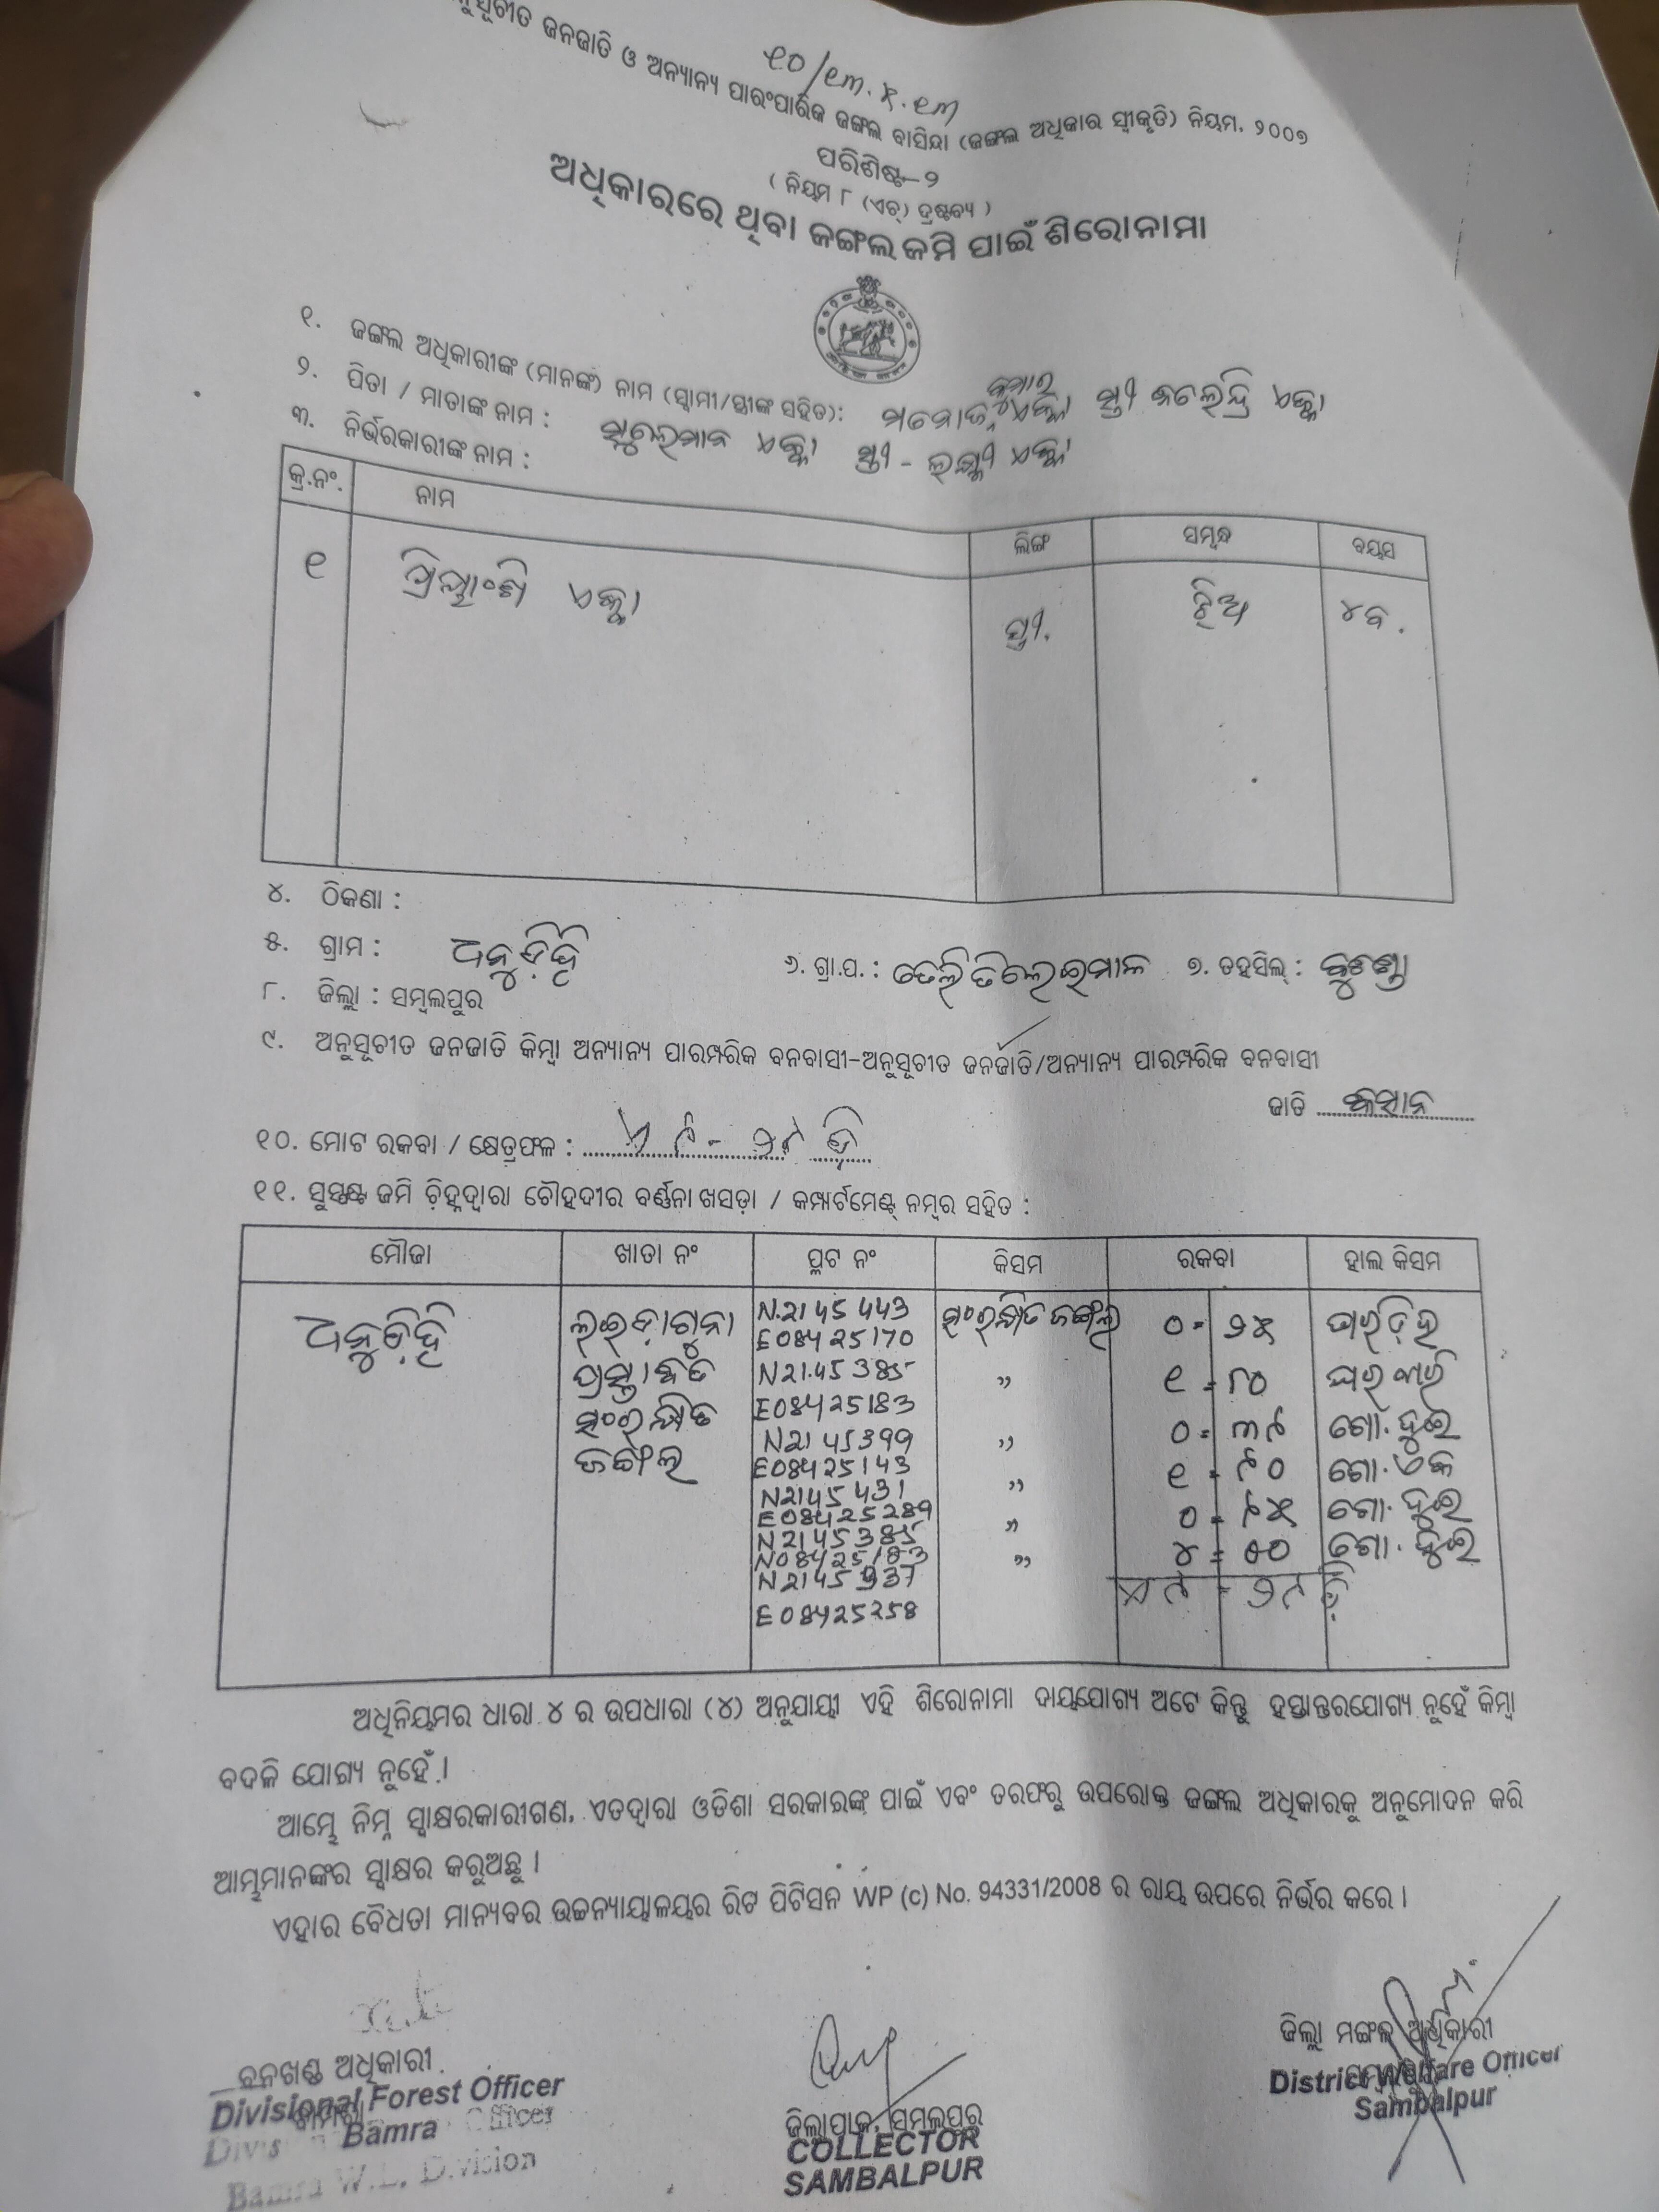 ଜନଜାତି ଓ ଅନ୍ୟାନ୍ୟ ପାରଂପାରିକ ଜଙ୍ଗଲ ବାସିନ୍ଦା (ଜଙ୍ଗଲ ଅଧିକାର ସ୍ୱୀକୃତି) ନିୟମ, ୨୦୦୭
୧୦/୧୩.୫.୧୩
ପରିଶିଷ୍ଟ-୨
( ନିୟମ ୮ (ଏଚ୍) ଦ୍ରଷ୍ଟବ୍ୟ )
ଅଧିକାରରେ ଥିବା ଜଙ୍ଗଲ ଜମି ପାଇଁ ଶିରୋନାମା
୧. ଜଙ୍ଗଲ ଅଧିକାରୀଙ୍କ (ମାନଙ୍କ) ନାମ (ସ୍ୱାମୀ/ସ୍ତ୍ରୀଙ୍କ ସହିତ): ମନୋଜ କୁମାର ଏକ୍କା ସ୍ତ୍ରୀ ଏକ୍କା
୨. ପିତା / ମାତାଙ୍କ ନାମ : ସୁଲେମାନ ଏକ୍କା ସ୍ତ୍ରୀ - ଲକ୍ଷ୍ମୀ ଏକ୍କା
୩. ନିର୍ଭରକାରୀଙ୍କ ନାମ :
କ୍ର.ନଂ. ନାମ ଲିଙ୍ଗ ସମ୍ବନ୍ଧ ବୟସ
୧ ପ୍ରିୟାଂଶି ଏକ୍କା ସ୍ତ୍ରୀ. ଝିଅ ୪ବ.
୪. ଠିକଣା :
୫. ଗ୍ରାମ : ଧନୁଡିହି ୬. ଗ୍ରା.ପ. : ତେଲିତିଲେଇମାଳ ୭. ତହସିଲ୍ : କୁଚିଣ୍ଡା
୮. ଜିଲ୍ଲା : ସମ୍ବଲପୁର
୯. ଅନୁସୂଚୀତ ଜନଜାତି କିମ୍ବା ଅନ୍ୟାନ୍ୟ ପାରମ୍ପରିକ ବନବାସୀ-ଅନୁସୂଚୀତ ଜନଜାତି/ଅନ୍ୟାନ୍ୟ ପାରମ୍ପରିକ ବନବାସୀ
ଜାତି କିସାନ
୧୦. ମୋଟ ରକବା / କ୍ଷେତ୍ରଫଳ :
୧୧. ସୁସ୍ପଷ୍ଟ ଜମି ଚ଼ିହ୍ନଦ୍ୱାରା ଚୌହଦୀର ବର୍ଣ୍ଣନା ଖସଡ଼ା / କମ୍ପାର୍ଟମେଣ୍ଟ୍ ନମ୍ବର ସହିତ :
ମୌଜା ଖାତା ନଂ ପ୍ଲଟ ନଂ କିସମ ରକବା ହାଲ କିସମ
ଧନୁଡିହି ଲଇଡାଗୁନା N.2145443 ସଂରକ୍ଷିତ ଜଙ୍ଗଲ ୦ = ୨୫ ଘରଡିହ
E08425170
ପ୍ରସ୍ତାବିତ N21.45385 " ୧ = ୮୦ ଘରବାରି
ସଂରକ୍ଷିତ E08425183
N2145399 " ୦ = ୩୯ ଗୋ. ଦୁଇ
ଜଙ୍ଗଲ E08425143
N2145431 " ୧ = ୯୦ ଗୋ. ଏକ
E08425289
N2145385 " ୦ = ୯୫ ଗୋ. ଦୁଇ
N08425183
N2145937 " ୪ = ୦୦ ଗୋ. ଦୁଇ
E08425258
ଅଧିନିୟମର ଧାରା ୪ ର ଉପଧାରା (୪) ଅନୁଯାୟୀ ଏହି ଶିରୋନାମା ଦାୟଯୋଗ୍ୟ ଅଟେ କିନ୍ତୁ ହସ୍ତାନ୍ତରଯୋଗ୍ୟ ନୁହେଁ କିମ୍ବା
ବଦଳି ଯୋଗ୍ୟ ନୁହେଁ ।
ଆମ୍ଭେ ନିମ୍ନ ସ୍ୱାକ୍ଷରକାରୀଗଣ, ଏତଦ୍ୱାରା ଓଡିଶା ସରକାରଙ୍କ ପାଇଁ ଏବଂ ତରଫରୁ ଉପରୋକ୍ତ ଜଙ୍ଗଲ ଅଧିକାରକୁ ଅନୁମୋଦନ କରି
ଆମ୍ଭମାନଙ୍କର ସ୍ୱାକ୍ଷର କରୁଅଛୁ ।
ଏହାର ବୈଧତା ମାନ୍ୟବର ଉଚ୍ଚନ୍ୟାୟାଳୟର ରିଟ ପିଟିସନ WP (c) No. 94331/2008 ର ରାୟ ଉପରେ ନିର୍ଭର କରେ ।
ବନଖଣ୍ଡ ଅଧିକାରୀ
Divisional Forest Officer
Bamra
Bamra W.L. Division
ଜିଲ୍ଲାପାଳ, ସମ୍ବଲପୁର
COLLECTOR
SAMBALPUR
ଜିଲ୍ଲା ମଙ୍ଗଳ ଅଧିକାରୀ
District Welfare Officer
Sambalpur